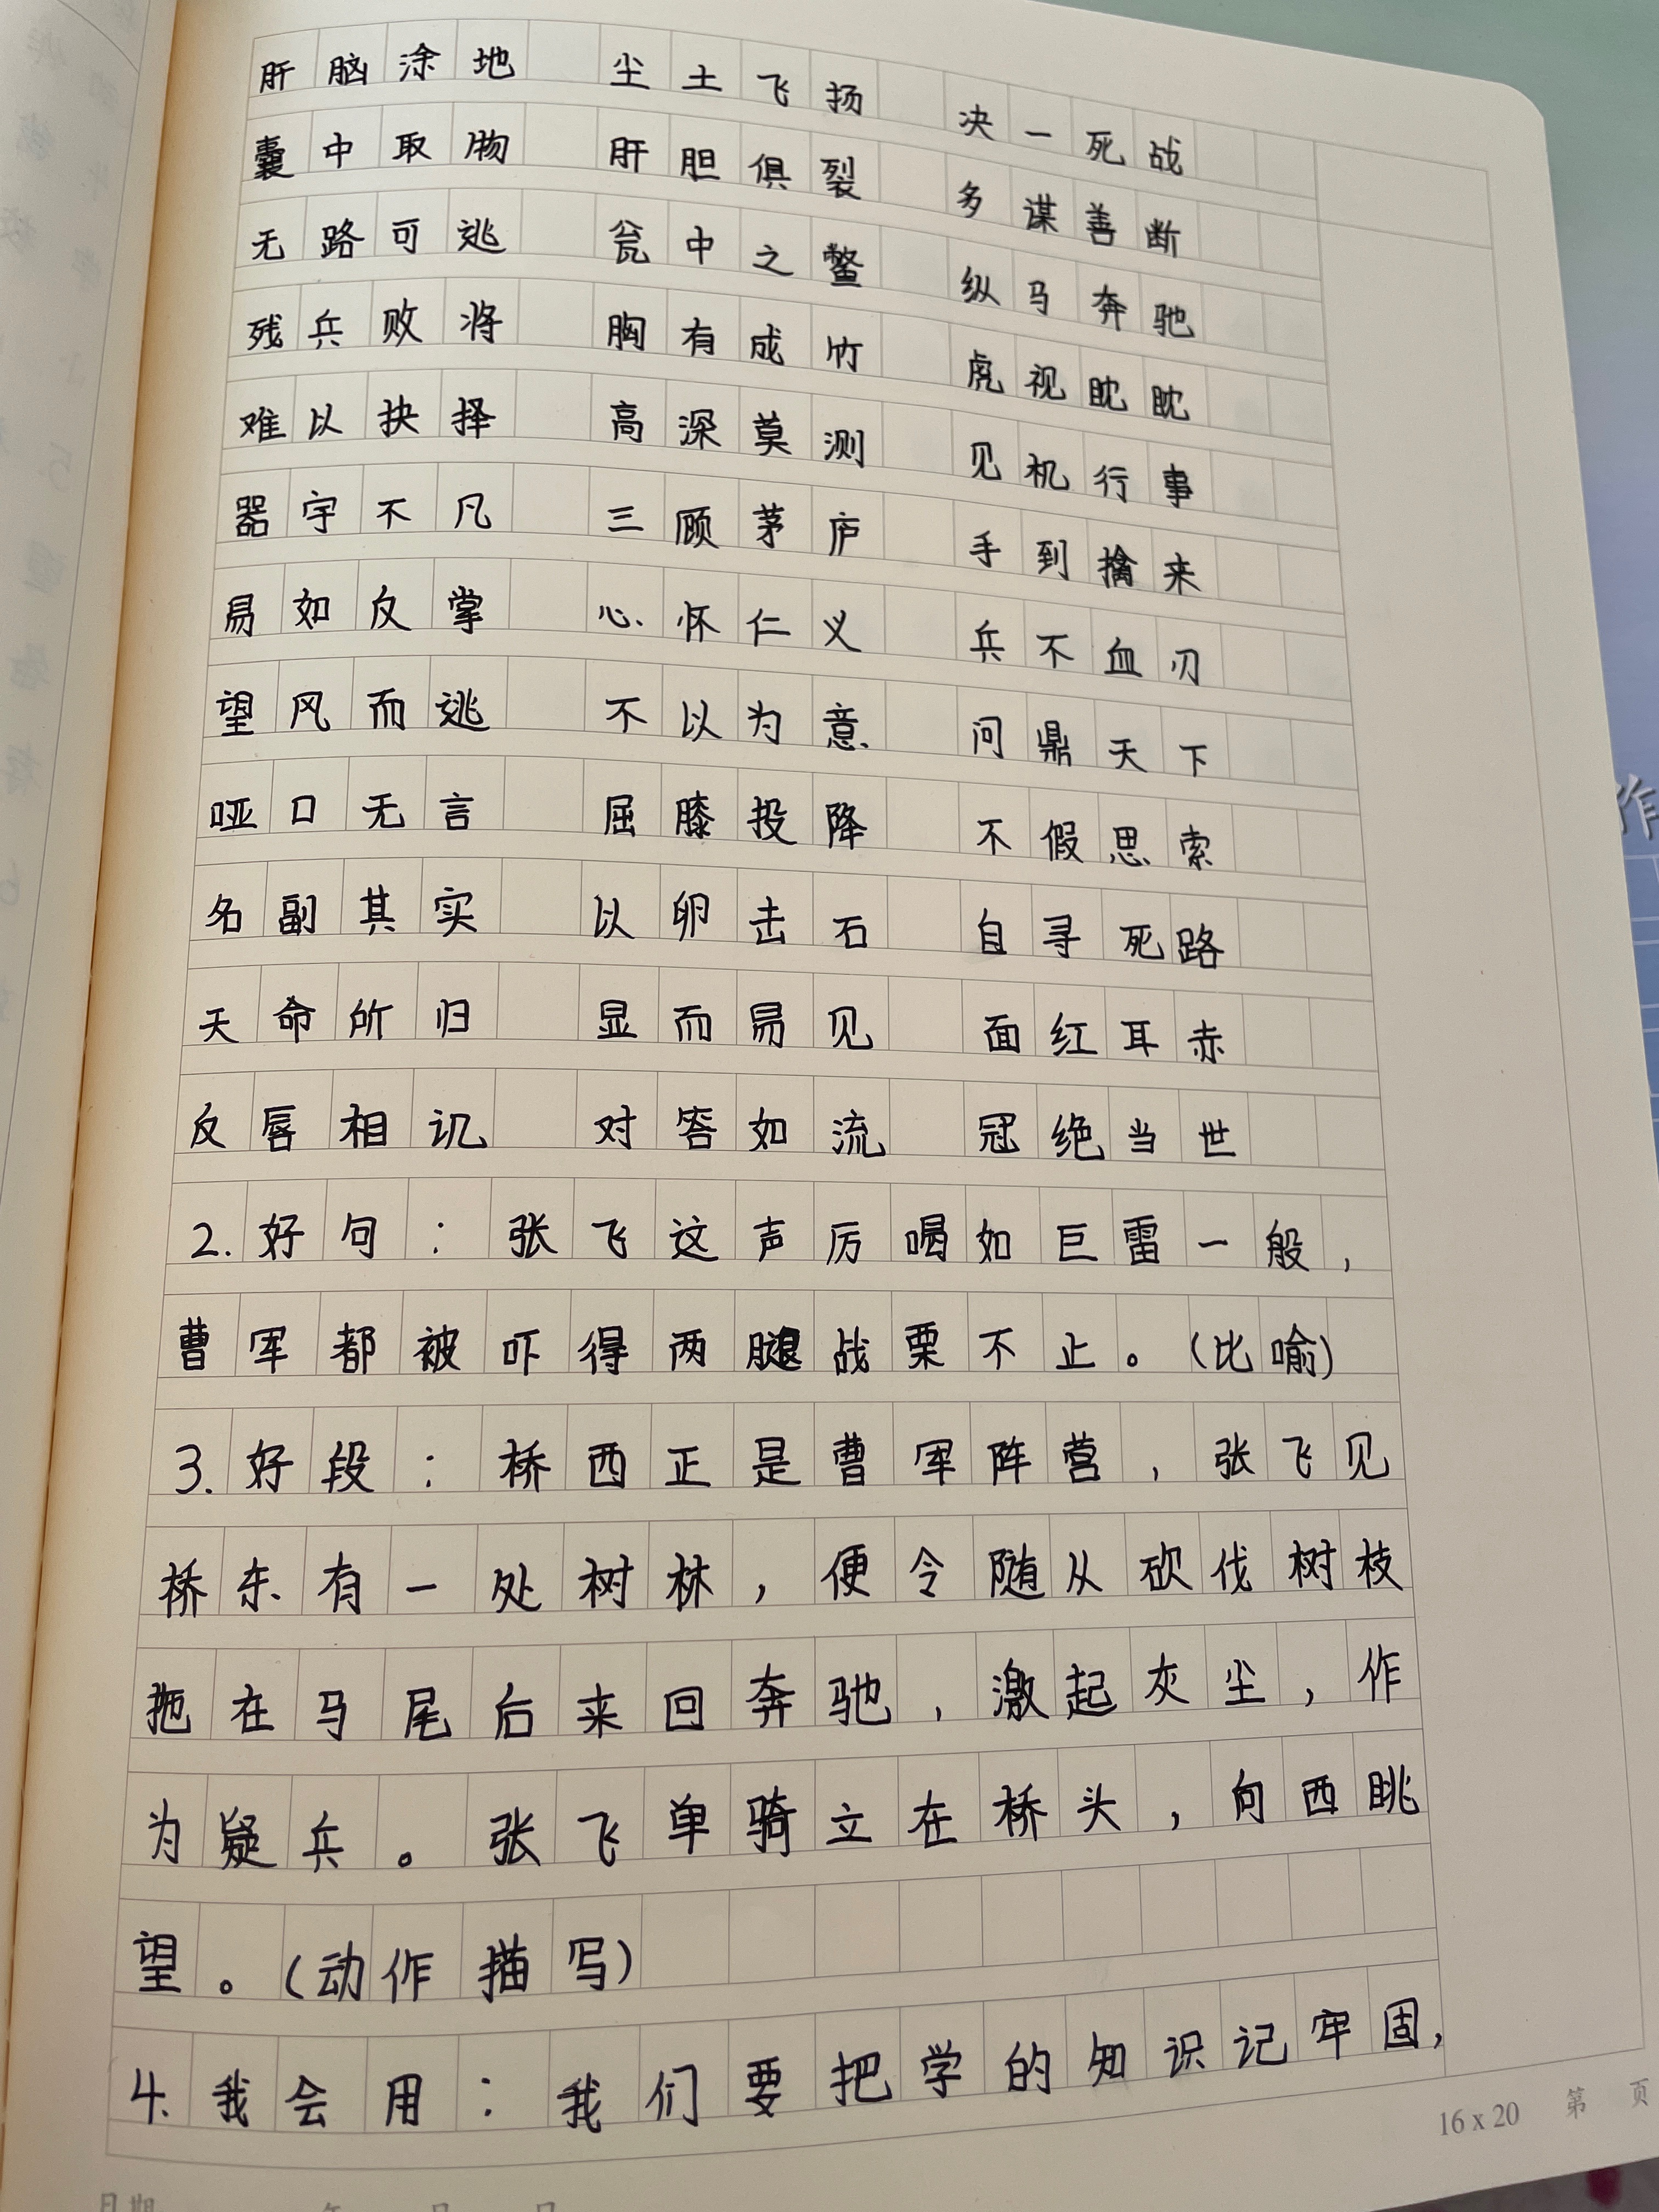 肝脑涂地 尘土飞扬 决一死战
囊中取物 肝胆俱裂 多谋善断
无路可逃 瓮中之鳖 纵马奔驰
残兵败将 胸有成竹 虎视眈眈
难以抉择 高深莫测 见机行事
器宇不凡 三顾茅庐 手到擒来
易如反掌 心怀仁义 兵不血刃
望风而逃 不以为意 问鼎天下
哑口无言 屈膝投降 不假思索
名副其实 以卵击石 自寻死路
天命所归 显而易见 面红耳赤
反唇相讥 对答如流 冠绝当世
2.好句：张飞这声厉喝如巨雷一般，
曹军都被吓得两腿战栗不止。（比喻）
3.好段：桥西正是曹军阵营，张飞见
桥东有一处树林，便令随从砍伐树枝
拖在马尾后来回奔驰，激起灰尘，作
为疑兵。张飞单骑立在桥头，向西眺
望。（动作描写）
4.我会用：我们要把学的知识记牢固，
16 x 20 第 页
日期 年 月 日
作